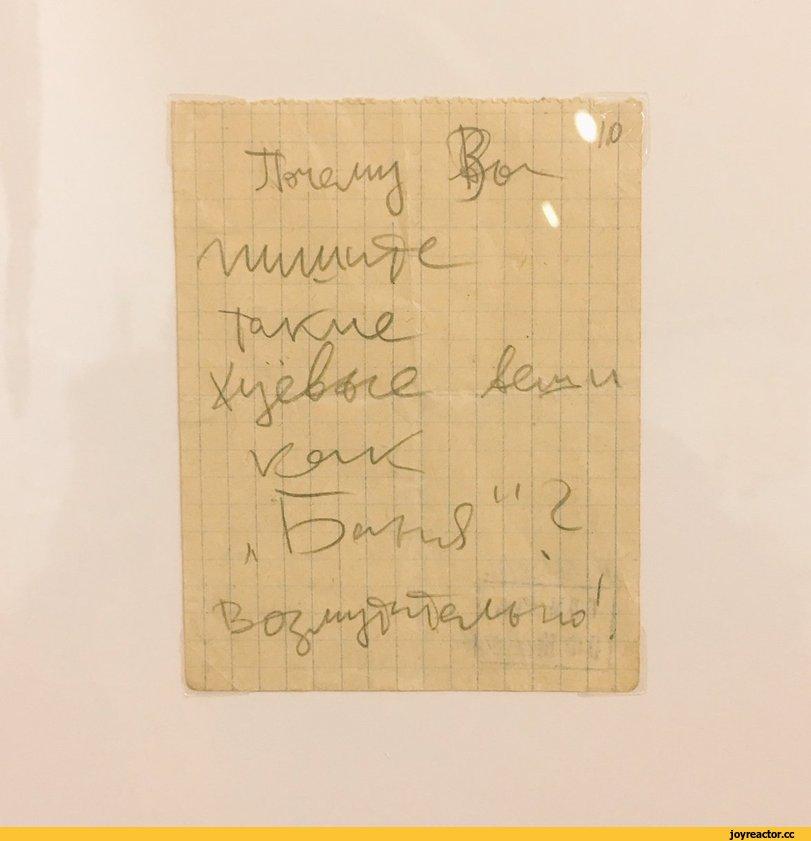 10
Почему Вы
пишите
такие
хуёвые вещи
как
„Баня“?
Возмутительно!
joyreactor.cc